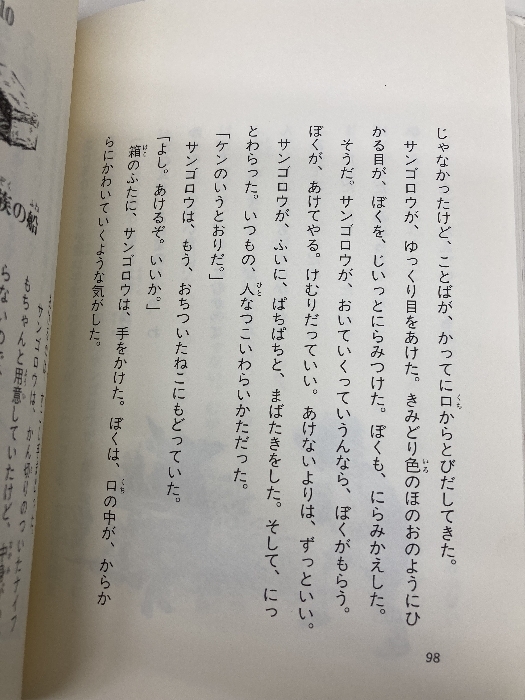 じゃなかったけど、ことばが、かってに口からとびだしてきた。
サンゴロウが、ゆっくり目をあけた。きみどり色のほのおのようにひ
かる目が、ぼくを、じいっとにらみつけた。ぼくも、にらみかえした。
そうだ。サンゴロウが、おいていくっていうんなら、ぼくがもらう。
ぼくが、あけてやる。けむりだっていい。あけないよりは、ずっといい。
サンゴロウが、ふいに、ぱちぱちと、まばたきをした。そして、にっ
とわらった。いつもの、人なつこいわらいかただった。
「ケンのいうとおりだ。」
サンゴロウは、もう、おちついたねこにもどっていた。
「よし。あけるぞ。いいか。」
箱のふたに、サンゴロウは、手をかけた。ぼくは、口の中が、からか
らにかわいていくような気がした。
98
10
族の船
サンゴロウは、かん切りのついたナイフ
もちゃんと用意していたけど、
らないので、